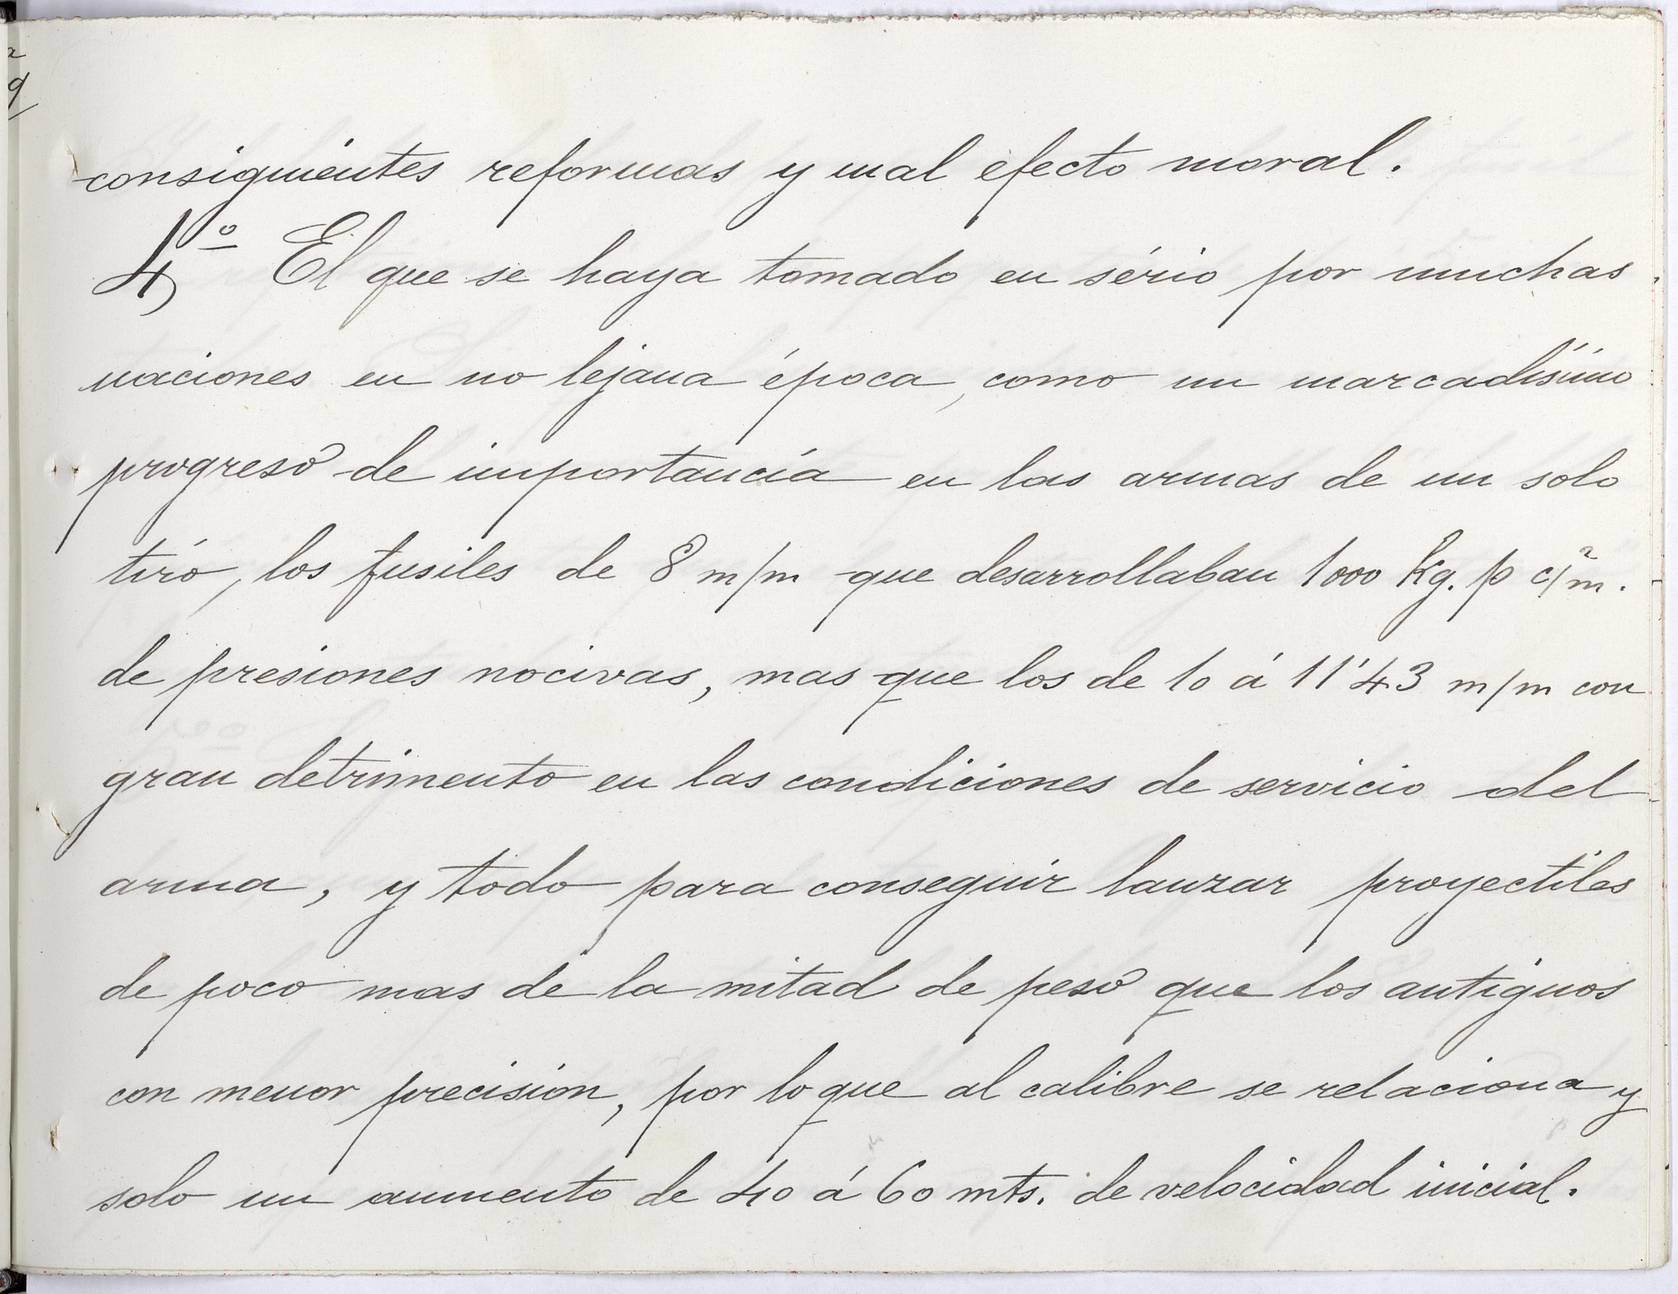 consiguientes reformas y mal efecto moral.
4º El que se haya tomado en sério por muchas
naciones en no lejana época, como un marcadísimo
progreso de importancia en las armas de un solo
tiro, los fusiles de 8 m/m que desarrollaban 1000 kg. p c/m².
de presiones nocivas, mas que los de 10 á 11'43 m/m con
gran detrimento en las condiciones de servicio del
arma, y todo para conseguir lanzar proyectiles
de poco mas de la mitad de peso que los antiguos
con menor precision, por lo que al calibre se relaciona y
solo un aumento de 40 á 60 mts. de velocidad inicial.